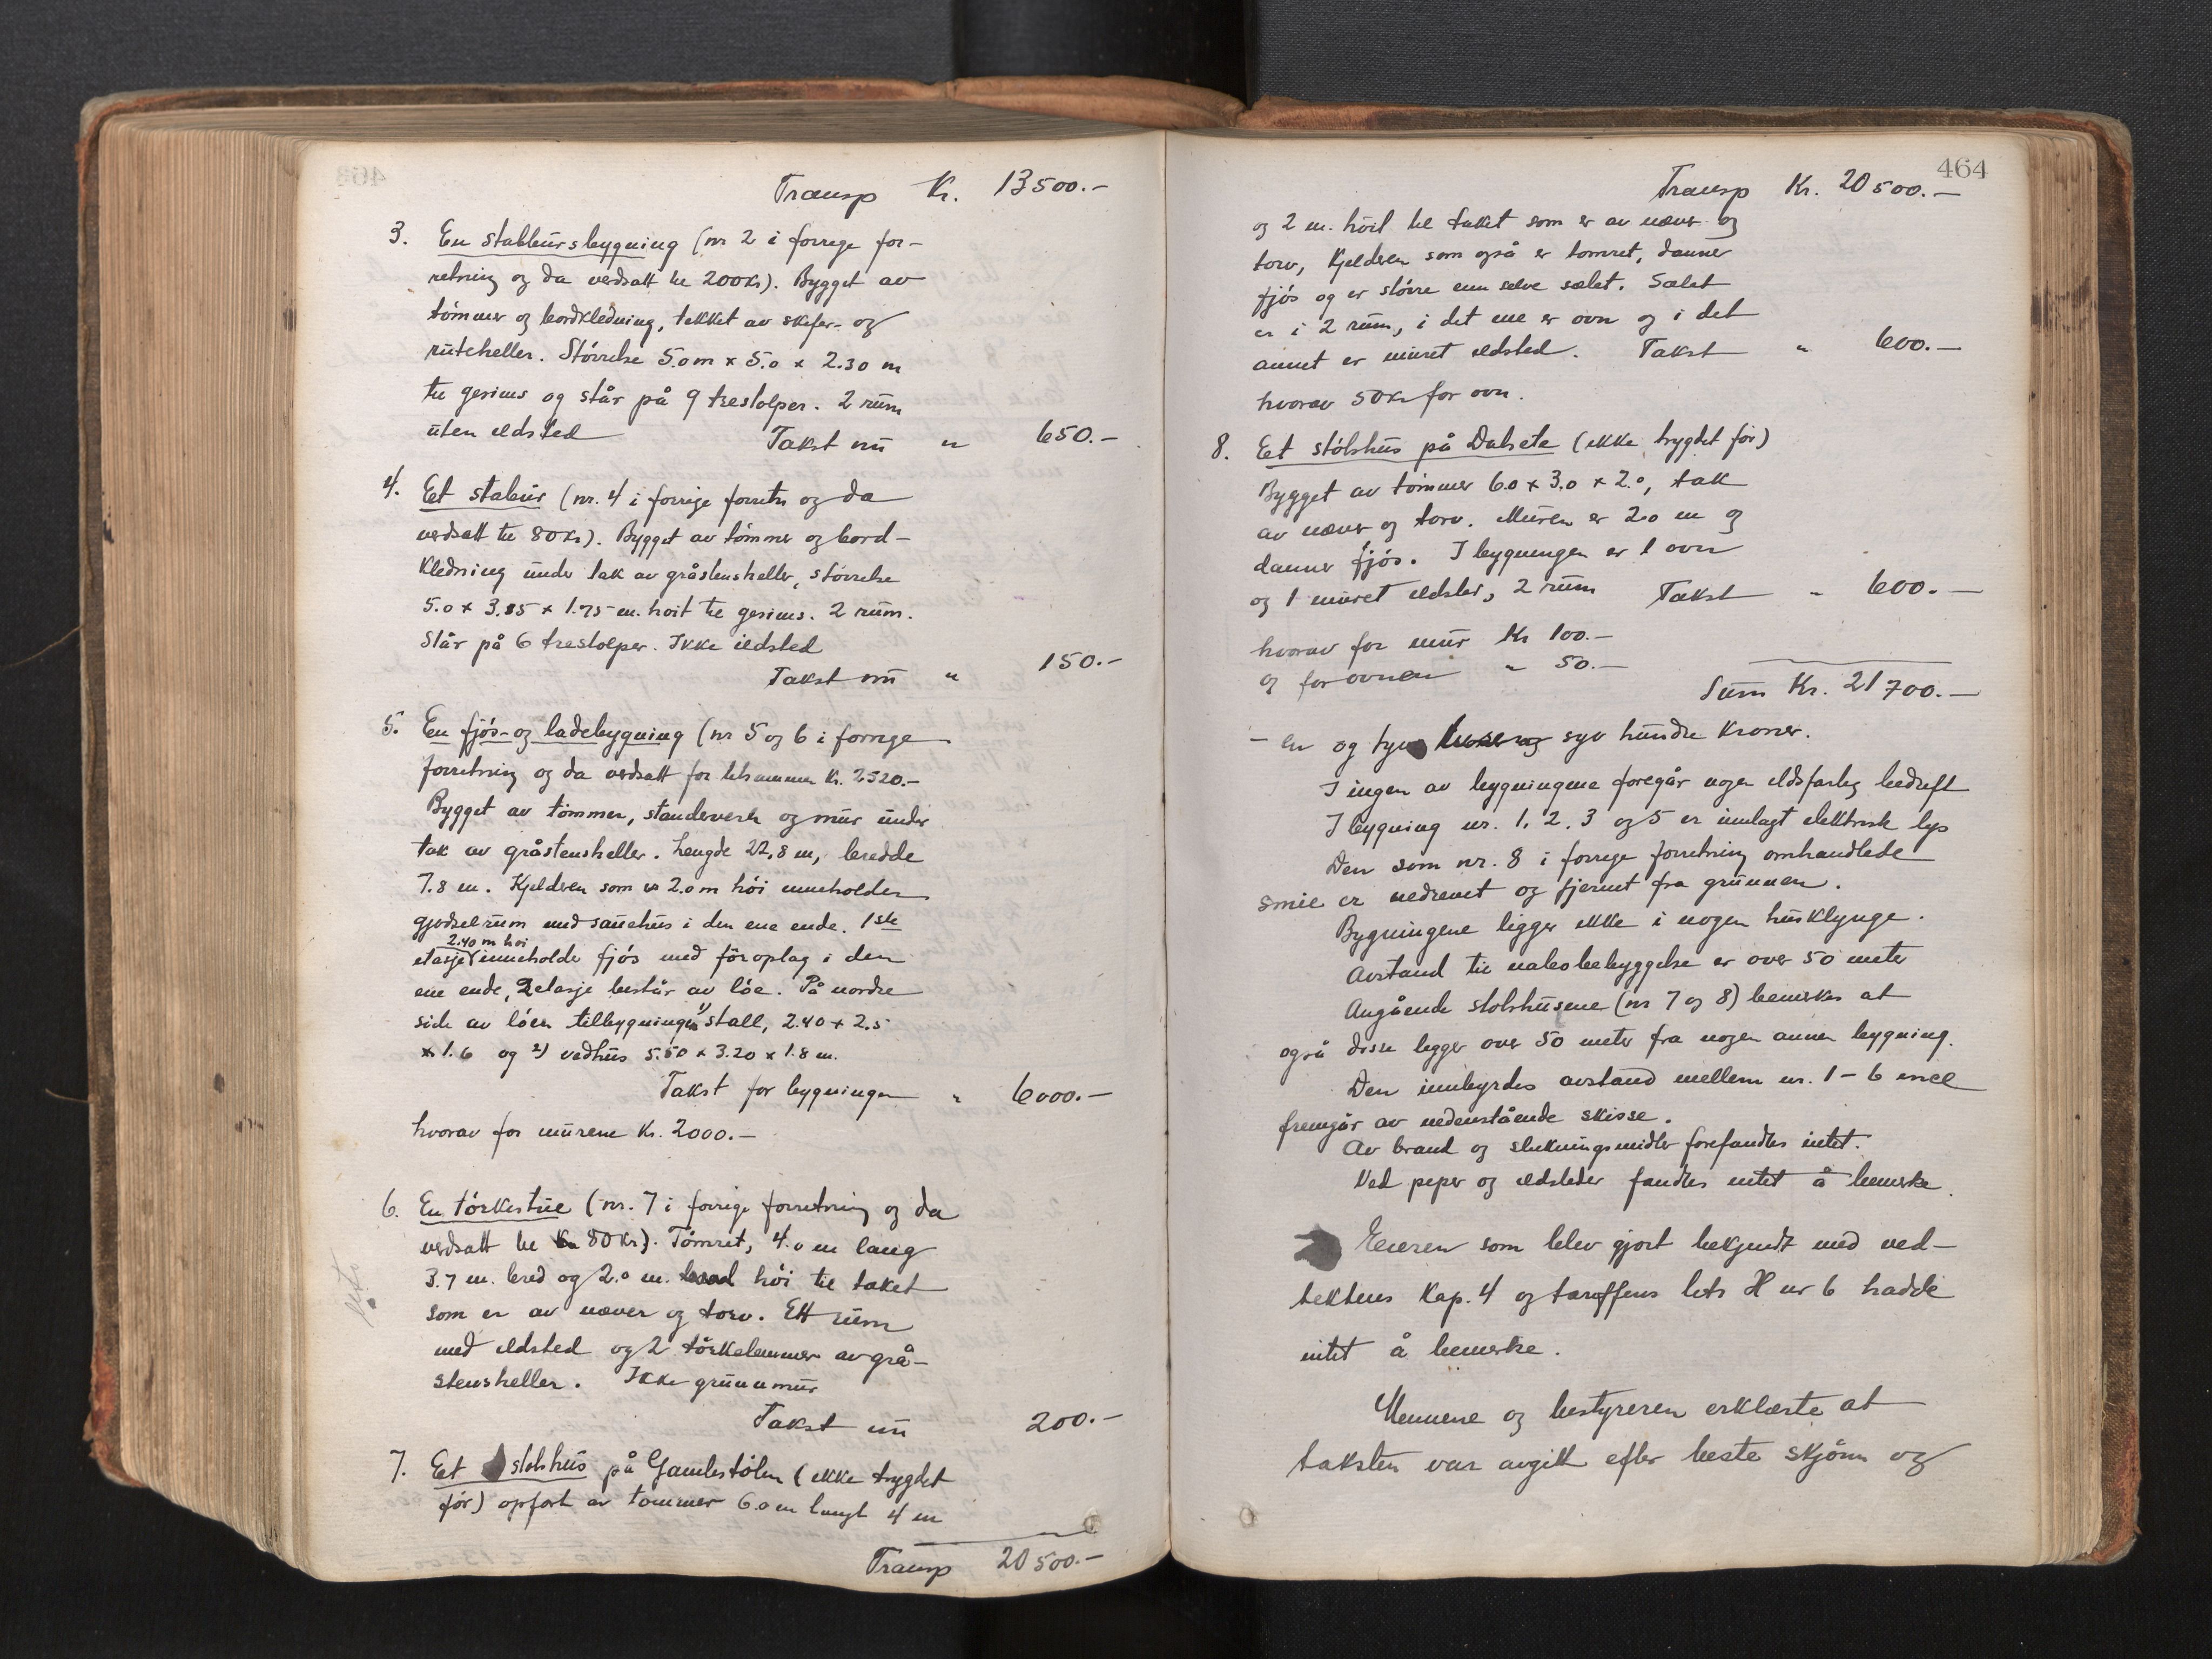 Transp Kr. 13500.-
3. En stabbursbygning (nr 2 i forrige for-
retning og da verdsatt til 200Kr). Bygget av
tømmer og bordkledning, tekket av skifer- og
ruteheller. Størrelse 5.0m x 5.0 x 2.30 m
til gesims og står på 9 trestolper. 2 rum
uten ildsted Takst nu " 650.-
4. Et stabur (nr. 4 i forrige forretn og da
verdsatt til 80Kr). Bygget av tømmer og bord-
kledning under tak av gråstensheller, størrelse
5.0 x 3.85 x 1.75 m. høit til gesims. 2 rum.
Står på 6 trestolper. Ikke ildsted
Takst nu " 150.-
5. En fjøs- og ladebygning (nr 5 og 6 i forrige
forretning og da verdsatt for tilsammen Kr. 2520.-
Bygget av tømmer, standerverk og mur under
tak av gråstensheller. Lengde 22,8 m, bredde
7.8 m. Kjelderen som er 2.0m høi inneholder
gjødselrum med sauehus i den ene ende. 1ste
2.40 m høi
etasje inneholder fjøs med fôroplag i den
ene ende, 2 etasje består av løe. På nordre
side av løen tilbygninger 1) stall, 2.40 x 2.5
x 1.6 og 2) vedhus 5.50 x 3.20 x 1.8 m.
Takst for bygningen " 6000.-
hvorav for murene Kr. 2000.-
6. En tørkestue (nr. 7 i forrige forretning og da
verdsatt til Kr 80Kr). Tømret, 4.0 m lang
3.7 m. bred og 2.0 m. bred høi til taket
som er av næver og torv. Ett rum
med ildsted og 2 tørkelemmer av grå-
stensheller. Ikke grunnmur
Takst nu 200.-
7. Et stølshus på Gamlestølen (ikke trygdet
før) opført av tømmer 6.0 m langt 4 m
Transp 20500.-
464
Transp Kr. 20500.-
og 2 m. høit til taket som er av næver og
torv, Kjelderen som også er tømret, danner
fjøs og er større enn selve selet. Selet
er i 2 rum, i det ene er ovn og i det
annet er muret ildsted. Takst " 600.-
hvorav 50Kr for ovn.
8. Et stølshus på Dalsete (ikke trygdet før)
Bygget av tømmer 6.0 x 3.0 x 2.0, tak
av næver og torv. Muren er 2.0 m og
danner fjøs. I bygningen er 1 ovn
og 1 muret ildsted, 2 rum Takst " 600.-
hvorav for mur Kr 100.-
og for ovnen " 50.-
Sum Kr. 21700.-
- en og tyve tusen og syv hundre Kroner.
I ingen av bygningene foregår nogen ildsfarlig bedrift
I bygning nr. 1, 2, 3 og 5 er innlagt elektrisk lys
Den som nr. 8 i forrige forretning omhandlede
smie er nedrevet og fjernet fra grunnen.
Bygningene ligger ikke i nogen husklynge.
Avstand til nabobebyggelse er over 50 meter
Angående stølshusene (nr 7 og 8) bemerkes at
også disse ligger over 50 meter fra nogen annen bygning.
Den innbyrdes avstand mellem nr. 1-6 incl
fremgår av nedenstående skisse.
Av brand og slukningsmidler forefandtes intet.
Ved piper og ildsteder fandtes intet å bemerke.
Eieren som blev gjort bekjendt med ved-
tektens Kap. 4 og tariffens litr H nr 6 hadde
intet å bemerke.
Mennene og bestyreren erklærte at
taksten var avgitt efter beste skjønn og